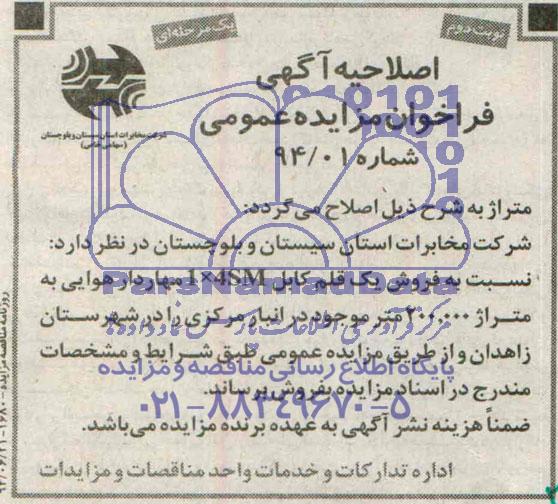 نوبت دوم
یک مرحله‌ای
اصلاحیه آگهی
فراخوان مزایده عمومی
شماره ۹۴/۰۱
شرکت مخابرات استان سیستان و بلوچستان
(سهامی خاص)
متراژ به شرح ذیل اصلاح می‌گردد:
شرکت مخابرات استان سیستان و بلوچستان در نظر دارد:
نسبت به فروش یک قلم کابل 1×4SM مهاردار هوایی به
متراژ ۲۰۰,۰۰۰ متر موجود در انبار مرکزی را در شهرستان
زاهدان و از طریق مزایده عمومی طبق شرایط و مشخصات
مندرج در اسناد مزایده بفروش برساند.
ضمناً هزینه نشر آگهی به عهده برنده مزایده می‌باشد.
اداره تدارکات و خدمات واحد مناقصات و مزایدات
روزنامه مناقصه مزایده - ۱۶۸۰ - ۹۴/۰۶/۲۱
ParsNamadData
پایگاه اطلاع رسانی مناقصه و مزایده
۰۲۱-۸۸۳۴۹۶۷۰-۵